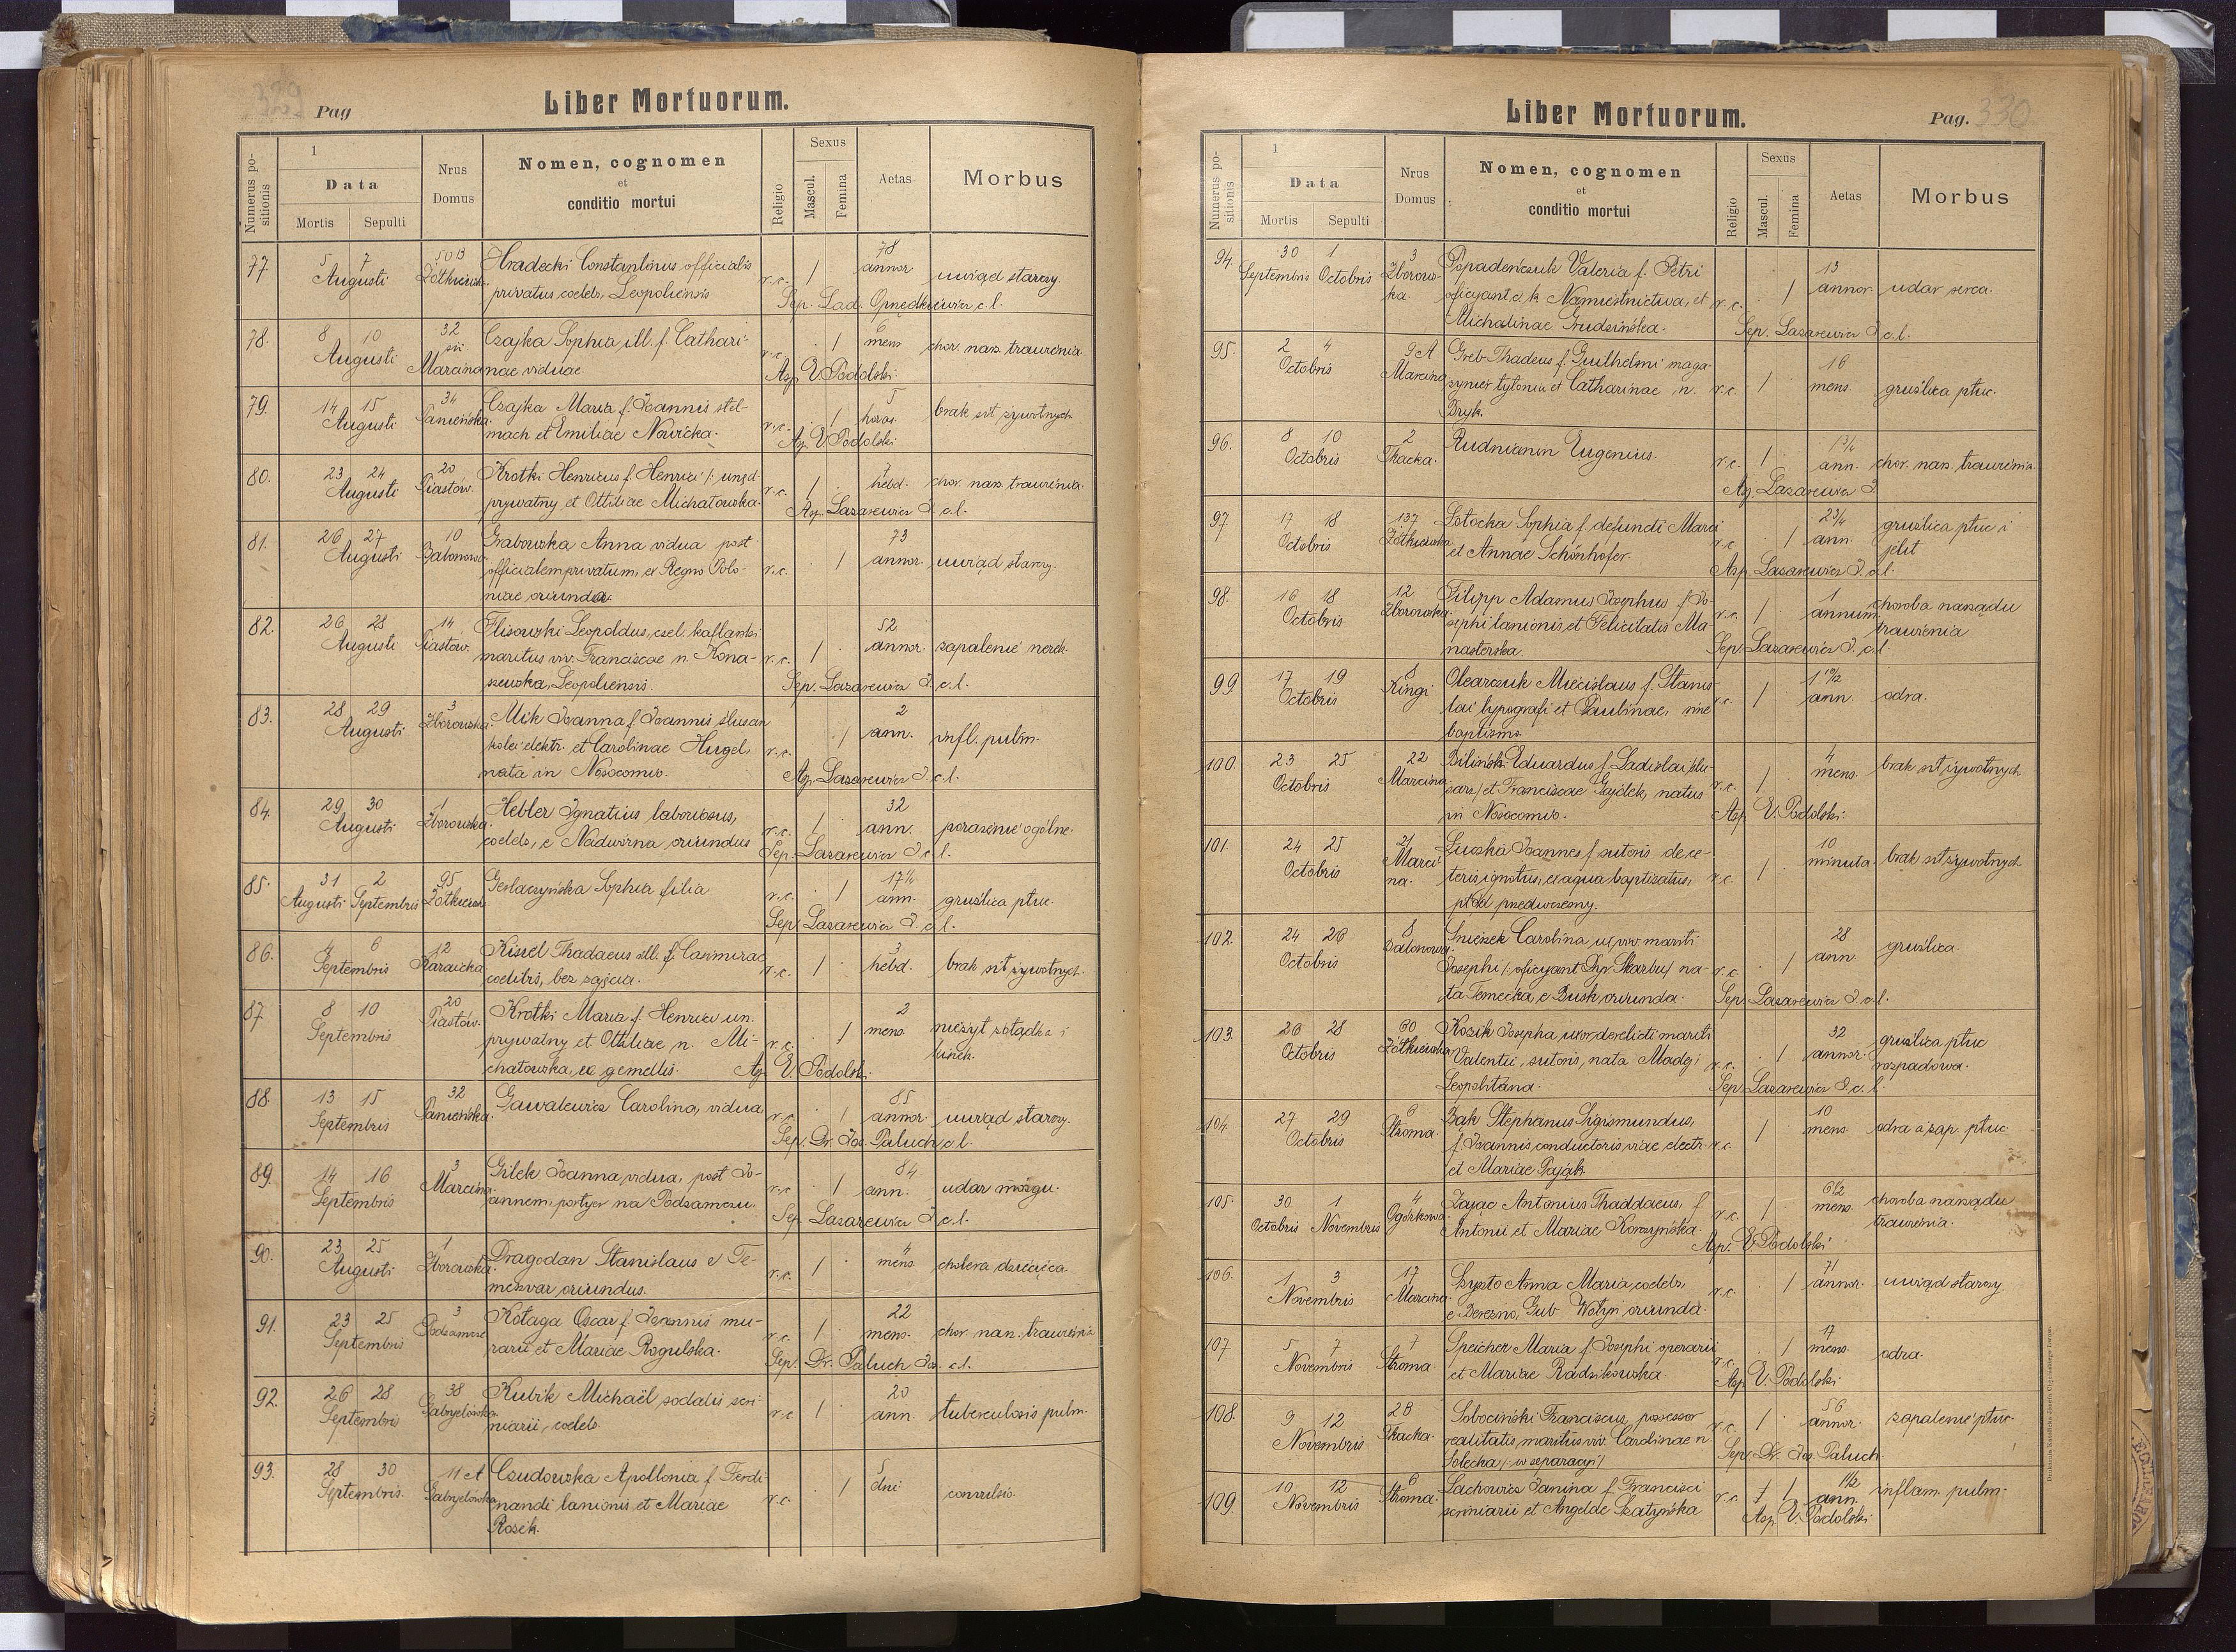 329
Pag
Liber Mortuorum.
Numerus positionis
1
Data
Mortis Sepulti
Nrus Domus
Nomen, cognomen
et
conditio mortui
Religio
Sexus
Mascul. Femina
Aetas
Morbus
77. 5 7 Augusti 50 B Żółkiewsk. Hradecki Constantinus officialis r.c. 1 78 annor uwiąd starczy.
privatus, coelebs, Leopoliensis
Sep. Lad. Opuędkiewicz c.l.
78. 8 10 Augusti 32 św. Marcina Czajka Sophia, ill. f. Cathari-
nae viduae. r.c. 1 6 mens chor. narz. trawienia.
Asp. V. Podolski.
79. 14 15 Augusti 34 Panieńska. Czajka Maria f. Joannis stel-
mach et Emiliae Nowicka. r.c. 1 5 horas. brak sił żywotnych
Asp. V. Podolski
80. 23 24 Augusti 20 Piastów. Krotki Henricus f. Henrici /: urzęd.
prywatny et Ottiliae Michałowska. r.c. 1 7 hebd. chor. narz. trawienia.
Asp. Lazarewicz J. c.l.
81. 26 27 Augusti 10 Balonowa Grabowska Anna vidua post
officialem privatum, ex Regno Polo-
niae oriunda. r.c. 1 73 annor. uwiąd starczy.
82. 26 28 Augusti 14 Piastów. Flisowski Leopoldus, czel. kaflarski
maritus viv. Franciscae n. Kona-
szewska, Leopoliensis. r.c. 1 52 annor. zapalenie nerek.
Sep. Lazarewicz J. c.l.
83. 28 29 Augusti 3 Zborowska. Mik Joanna f. Joannis ślusarz
kolei elektr. et Carolinae Hugel,
nata in Nosocomio. r.c. 1 2 ann. infl. pulm.
Asp. Lazarewicz J. c.l.
84. 29 30 Augusti 1 Zborowska. Hebler Ignatius laboriosus,
coelebs, e Nadwórna oriundus r.c. 1 32 ann. porażenie ogólne.
Sep. Lazarewicz J. c.l.
85. 31 Augusti 2 Septembris 95 Żółkiewsk. Geslaczyńska Sophia filia r.c. 1 17½ ann. gruźlica płuc.
Sep. Lazarewicz J. c.l.
86. 4 6 Septembris 12 Karaicka Kissel Thadaeus ill. f. Casimirae
coelibis, bez zajęcia. r.c. 1 3 hebd. brak sił żywotnych.
87 8 10 Septembris 20 Piastów. Krotki Maria f. Henrici un.
prywatny et Ottiliae n. Mi-
chałowska, ex gemellis. r.c. 1 2 mens. nieżyt żołądka i
kiszek.
Asp. V. Podolski.
88. 13 15 Septembris 32 Panieńska. Gawalewicz Carolina, vidua r.c. 1 85 annor. uwiąd starczy.
Sep. Dr. Jos. Paluch c.l.
89. 14 16 Septembris 3 Marcina Gilek Joanna, vidua, post Jo-
annem, portyer na Podzamczu. r.c. 1 84 ann. udar mózgu.
Sep. Lazarewicz J. c.l.
90. 23 25 Augusti 1 Zborowska. Dragodan Stanislaus e Te-
mezvar oriundus. r.c. 1 4 mens. cholera dziecięca.
91. 23 25 Septembris 3 Podzamcze Kotaga Oscar f. Joannis mu-
rarii et Mariae Rogulska. r.c. 1 22 mens. chor. narz. trawienia
Sep. Dr. Paluch Jos. c.l.
92. 26 28 Septembris 38 Gabryelówka Kubik Michaël sodalis scri-
niarii, coelebs. r.c. 1 20 ann. tuberculosis pulm.
93. 28 30 Septembris. 11 A Gabryelówka Czudowska Apollonia f. Ferdi-
nandi lanionis, et Mariae
Rosik. r.c. 1 5 dni convulsio.
Liber Mortuorum.
Pag. 330
Numerus positionis
1
Data
Mortis Sepulti
Nrus Domus
Nomen, cognomen
et
conditio mortui
Religio
Sexus
Mascul. Femina
Aetas
Morbus
94. 30 Septembris 1 Octobris 3 Zborows-
ka. Popadeńczuk Valeria f. Petri
oficyant c. k. Namiestnictwa, et
Michalinae Grudzińska. r.c. 1 13 annor. udar serca.
Sep. Lazarewicz J. c.l.
95. 2 4 Octobris 9 A Marcina Greb Thadeus f. Guilhelmi maga-
zynier tytoniu et Catharinae n.
Bryk. r.c. 1 16 mens. gruźlica płuc.
96. 8 10 Octobris 2 Tkacka. Rudnianin Eugenius. r.c. 1 1¾ ann. chor. narz. trawienia
Asp. Lazarewicz J.
97. 17 18 Octobris 137 Żółkiewska Potocka Sophia f. defuncti Marci
et Annae Schönhofer. r.c. 1 2¾ ann. gruźlica płuc i
jelit
Asp. Lazarewicz J. c.l.
98. 16 18 Octobris 12 Zborowska. Filipp Adamus Josephus f. Jo-
sephi lanionis, et Felicitatis Ma-
nasterska. r.c. 1 1 annum. choroba narządu
trawienia
Sep. Lazarewicz J. c.l.
99 17 19 Octobris 8 Kingi Olearczuk Miecislaus f. Stanis-
lai typografi et Paulinae, sine
baptismo. r.c. 1 1 10/12 ann. odra.
100. 23 25 Octobris 22 Marcina Biliński Eduardus f. Ladislai /ślu-
sarz/ et Franciscae Gajdek, natus
in Nosocomio. r.c. 1 4 mens. brak sił żywotnych
Asp. V. Podolski.
101. 24 25 Octobris 21 Marci-
na. Luzska Joannes f. sutoris de ce-
teris ignotus, ex aqua baptisatus,
płód przedwczesny. r.c. 1 10 minuta. brak sił żywotnych
102. 24 26 Octobris 8 Balonowa. Snieżek Carolina ux. viv. mariti
Josephi /: oficyant Dyr. Skarbu/ na-
ta Temecka, e Busk oriunda. r.c. 1 28 ann. gruźlica.
Sep. Lazarewicz J. c.l.
103. 26 28 Octobris 60 Żółkiewska Kozik Josepha uxor derelicti mariti
Valentii, sutoris, nata Madej
Leopolitana. r.c. 1 32 annor. gruźlica płuc
rozpadowa.
Sep. Lazarewicz J. c.l.
104. 27 29 Octobris 6 Stroma. Bąk Stephanus Sigismundus,
f. Joannis conductoris viae electr.
et Mariae Pająk. r.c. 1 10 mens. odra i zap. płuc
105. 30 Octobris 1 Novembris 4 Ogórkowa Zając Antonius Thaddaeus, f.
Antonii et Mariae Korczyńska. r.c. 1 6½ mens. choroba narządu
trawienia.
Asp. V. Podolski
106. 1 3 Novembris 17 Marcina. Szyszto Anna Maria, coelebs,
e Berezno, Gub. Wołyń oriunda. r.c. 1 71 annor. uwiąd starczy.
107 5 7 Novembris 7 Stroma Speicher Maria f. Josephi operarii
et Mariae Radzikowska. r.c. 1 17 mens. odra.
Asp. V. Podolski
108. 9 12 Novembris 2B Tkacka. Sobociński Franciscus, possessor
realitatis, maritus viv. Carolinae n.
Solecka /: w separacyi/ r.c. 1 56 annor. zapalenie płuc.
Sep. Dr. Jos. Paluch.
109. 10 12 Novembris 6 Stroma. Lachowicz Janina f. Francisci
scriniarii et Angelae Szatyńska r.c. 1 1½ ann. inflam. pulm.
Asp. V. Podolski